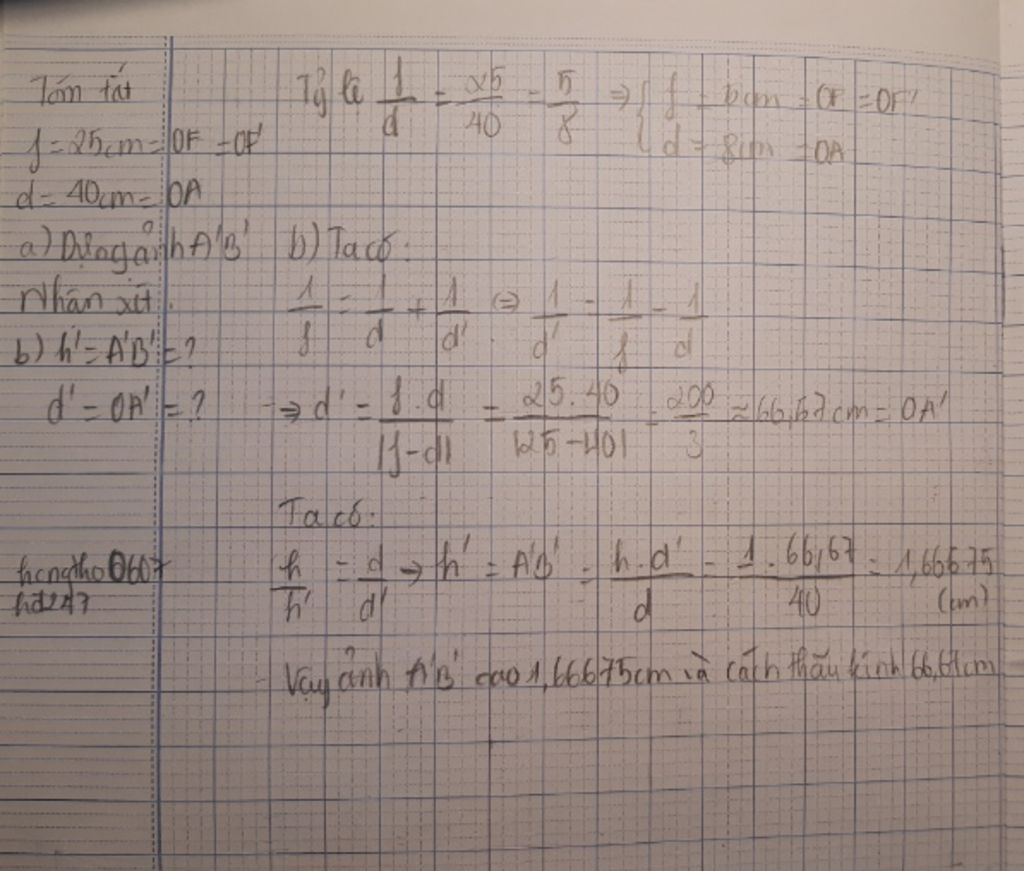 Tóm tắt
f = 25cm = OF = OF'
d = 40cm = OA
a) Dựng ảnh A'B'
Nhận xét.
b) h' = A'B' = ?
d' = OA' = ?
hongtho0607
hd247
Tỷ lệ f/d = 25/40 = 5/8 ⇒ { f = 5cm = OF = OF'
d = 8cm = OA
b) Ta có:
1/f = 1/d + 1/d' ⇔ 1/d' = 1/f - 1/d
⇒ d' = f.d/|f-d| = 25.40/|25-40| = 200/3 ≈ 66,67cm = OA'
Ta có:
h/h' = d/d' → h' = A'B' = h.d'/d = 1.66,67/40 = 1,66675 (cm)
Vậy ảnh A'B' cao 1,66675cm và cách thấu kính 66,67cm